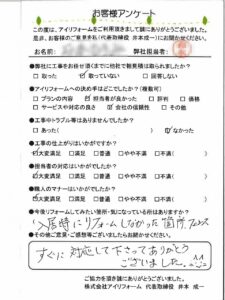 お客様アンケート
この度は、アイリフォームをご利用頂きまして誠にありがとうございました。
是非、お客様のご意見をお(代表取締役 井本成一)にお聞かせください。
お名前: 弊社担当者:
●弊社に工事をお任せ頂くまでに他社で相見積は取られましたか?
□取った ☑取っていない □回答しない
●アイリフォームへの決め手はどこでしたか?(複数可)
□プランの内容 ☑担当者が良かった □評判 □価格
□サービスや対応の良さ □会社の信頼性 □その他
●工事中トラブル等はありませんでしたか?
□あった( ) ☑なかった
●工事の仕上がりはいかがですか?
☑大変満足 □満足 □普通 □やや不満 □不満( )
●担当者の対応はいかがでしたか?
☑大変満足 □満足 □普通 □やや不満 □不満( )
●職人のマナーはいかがでしたか?
☑大変満足 □満足 □普通 □やや不満 □不満( )
●今後リフォームしてみたい箇所・気になっている所はありますか?
入居時にリフォームしなかった箇所、フェンス
●その他ご意見・ご感想等ございましたらお聞かせください。
すぐに対応して下さってありがとう
ございました。
ご協力を頂き誠にありがとうございました。
株式会社アイリフォーム 代表取締役 井本 成一